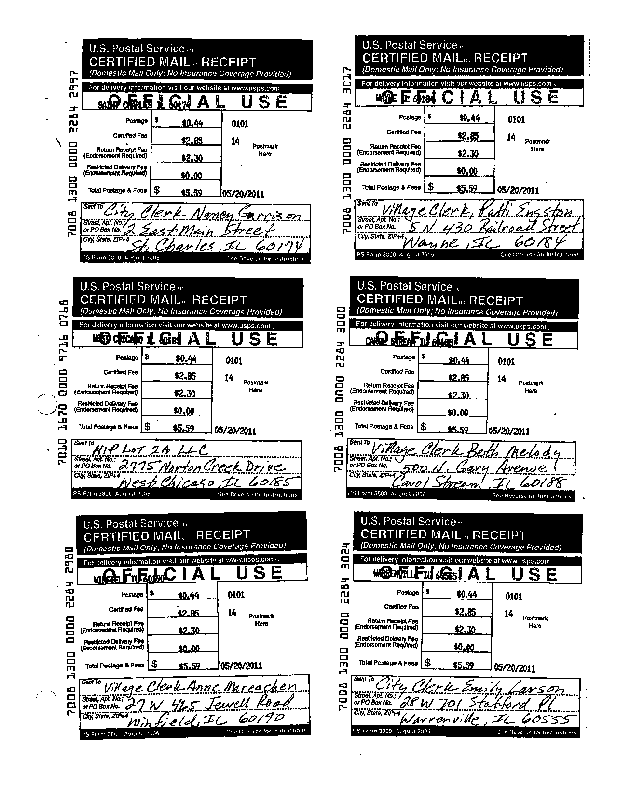 U.S. Postal Service
CERTIFIED MAIL RECEIPT
(Domestic Mail Only; No Insurance Coverage Provided)
For delivery information visit our website at www.usps.com
OFFICIAL USE
Postage $ $0.44 0101
Certified Fee $2.85 14
Postmark Here
Return Receipt Fee (Endorsement Required) $2.30
Restricted Delivery Fee (Endorsement Required) $0.00
Total Postage & Fees $ $5.59 05/20/2011
Sent To City Clerk Nancy Garrison
Street, Apt. No.; or PO Box No. 2 East Main Street
City, State, ZIP+4 St. Charles, IL 60174
PS Form 3800, August 2006 See Reverse for Instructions
7008 1300 0000 2284 2997
U.S. Postal Service
CERTIFIED MAIL RECEIPT
(Domestic Mail Only; No Insurance Coverage Provided)
For delivery information visit our website at www.usps.com
OFFICIAL USE
Postage $ $0.44 0101
Certified Fee $2.85 14
Postmark Here
Return Receipt Fee (Endorsement Required) $2.30
Restricted Delivery Fee (Endorsement Required) $0.00
Total Postage & Fees $ $5.59 05/20/2011
Sent To Village Clerk, Patti Engston
Street, Apt. No.; or PO Box No. 5 N 430 Railroad Street
City, State, ZIP+4 Wayne, IL 60184
PS Form 3800, August 2006 See Reverse for Instructions
7008 1300 0000 2284 3017
U.S. Postal Service
CERTIFIED MAIL RECEIPT
(Domestic Mail Only; No Insurance Coverage Provided)
For delivery information visit our website at www.usps.com
OFFICIAL USE
Postage $ $0.44 0101
Certified Fee $2.85 14
Postmark Here
Return Receipt Fee (Endorsement Required) $2.30
Restricted Delivery Fee (Endorsement Required) $0.00
Total Postage & Fees $ $5.59 05/20/2011
Sent To HIP LOT 2A LLC
Street, Apt. No.; or PO Box No. 2775 Norton Creek Drive
City, State, ZIP+4 West Chicago IL 60185
PS Form 3800, August 2006 See Reverse for Instructions
1670 0000 9716 0768
U.S. Postal Service
CERTIFIED MAIL RECEIPT
(Domestic Mail Only; No Insurance Coverage Provided)
For delivery information visit our website at www.usps.com
OFFICIAL USE
Postage $ $0.44 0101
Certified Fee $2.85 14
Postmark Here
Return Receipt Fee (Endorsement Required) $2.30
Restricted Delivery Fee (Endorsement Required) $0.00
Total Postage & Fees $ $5.59 05/20/2011
Sent To Village Clerk Beth Melody
Street, Apt. No.; or PO Box No. 500 N. Gary Avenue
City, State, ZIP+4 Carol Stream, IL 60188
PS Form 3800, August 2006 See Reverse for Instructions
7008 1300 0000 2284 3000
U.S. Postal Service
CERTIFIED MAIL RECEIPT
(Domestic Mail Only; No Insurance Coverage Provided)
For delivery information visit our website at www.usps.com
OFFICIAL USE
Postage $ $0.44 0101
Certified Fee $2.85 14
Postmark Here
Return Receipt Fee (Endorsement Required) $2.30
Restricted Delivery Fee (Endorsement Required) $0.00
Total Postage & Fees $ $5.59 05/20/2011
Sent To Village Clerk Anne Mareachen
Street, Apt. No.; or PO Box No. 27 W 465 Jewell Road
City, State, ZIP+4 Winfield, IL 60190
PS Form 3800, August 2006 See Reverse for Instructions
7008 1300 0000 2284 2980
U.S. Postal Service
CERTIFIED MAIL RECEIPT
(Domestic Mail Only; No Insurance Coverage Provided)
For delivery information visit our website at www.usps.com
OFFICIAL USE
Postage $ $0.44 0101
Certified Fee $2.85 14
Postmark Here
Return Receipt Fee (Endorsement Required) $2.30
Restricted Delivery Fee (Endorsement Required) $0.00
Total Postage & Fees $ $5.59 05/20/2011
Sent To City Clerk Emily Larson
Street, Apt. No.; or PO Box No. 28 W 701 Stafford Pl
City, State, ZIP+4 Warrenville, IL 60555
PS Form 3800, August 2006 See Reverse for Instructions
7008 1300 0000 2284 3024